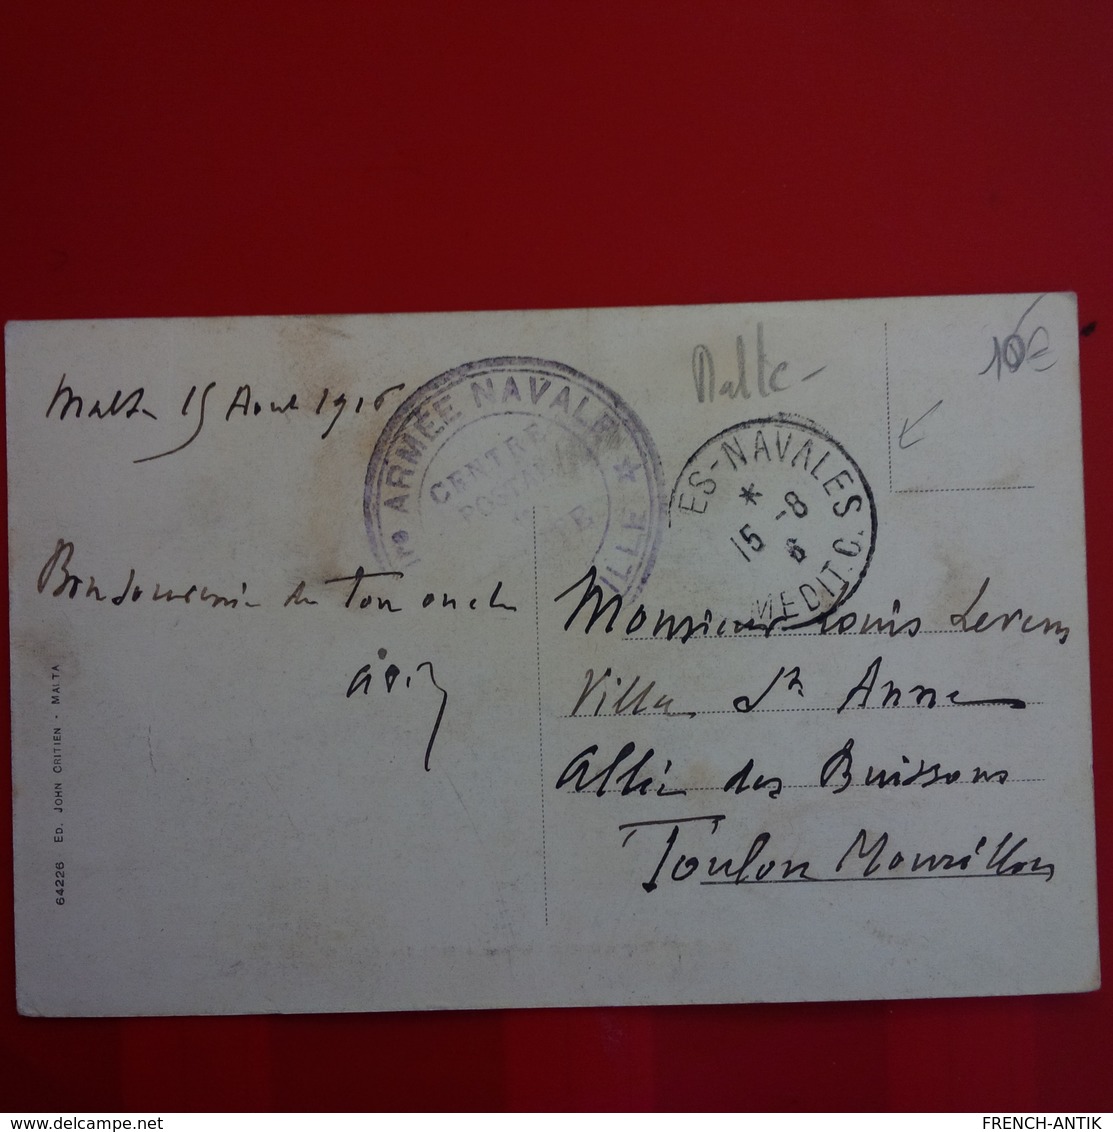 Malte
10€
Malte 15 Aout 1916
1re ARMÉE NAVALE
CENTRE
POSTAL
ILLE
ES-NAVALES
*
15 -8
6
MEDIT.C.
Bon souvenir de ton oncle
Monsieur Louis
Villa St Anne
Allée des Buissons
Toulon Mourillon
64226 ED. JOHN CRITIEN - MALTA
FRENCH-ANTIK
delcampe.net